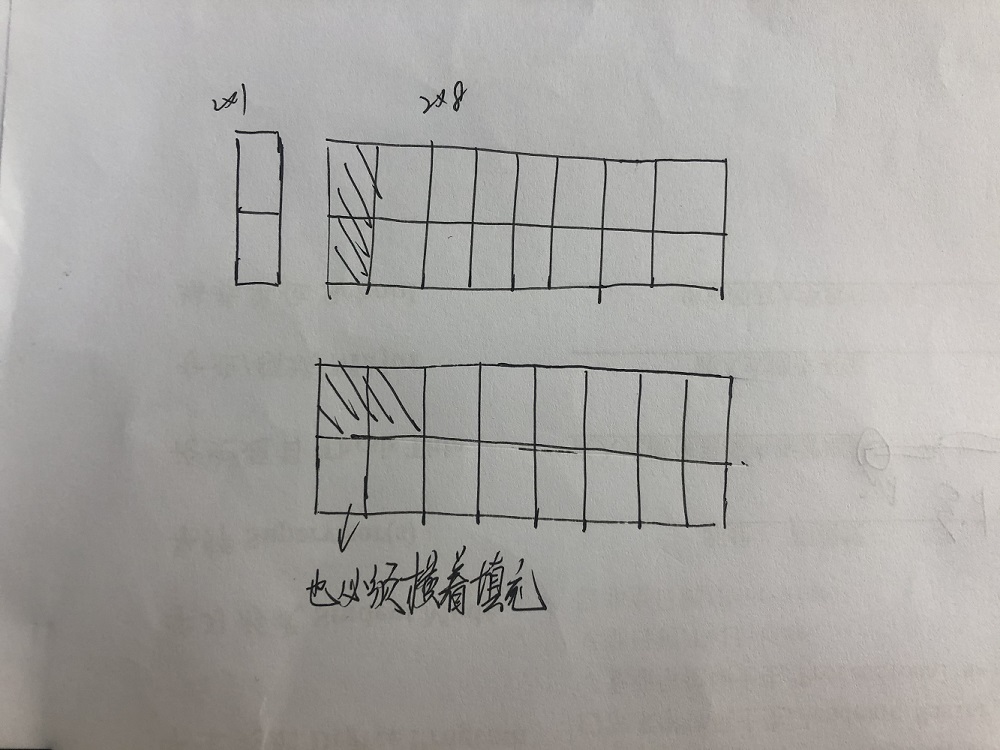 2×1
2×8
也必须横着填充